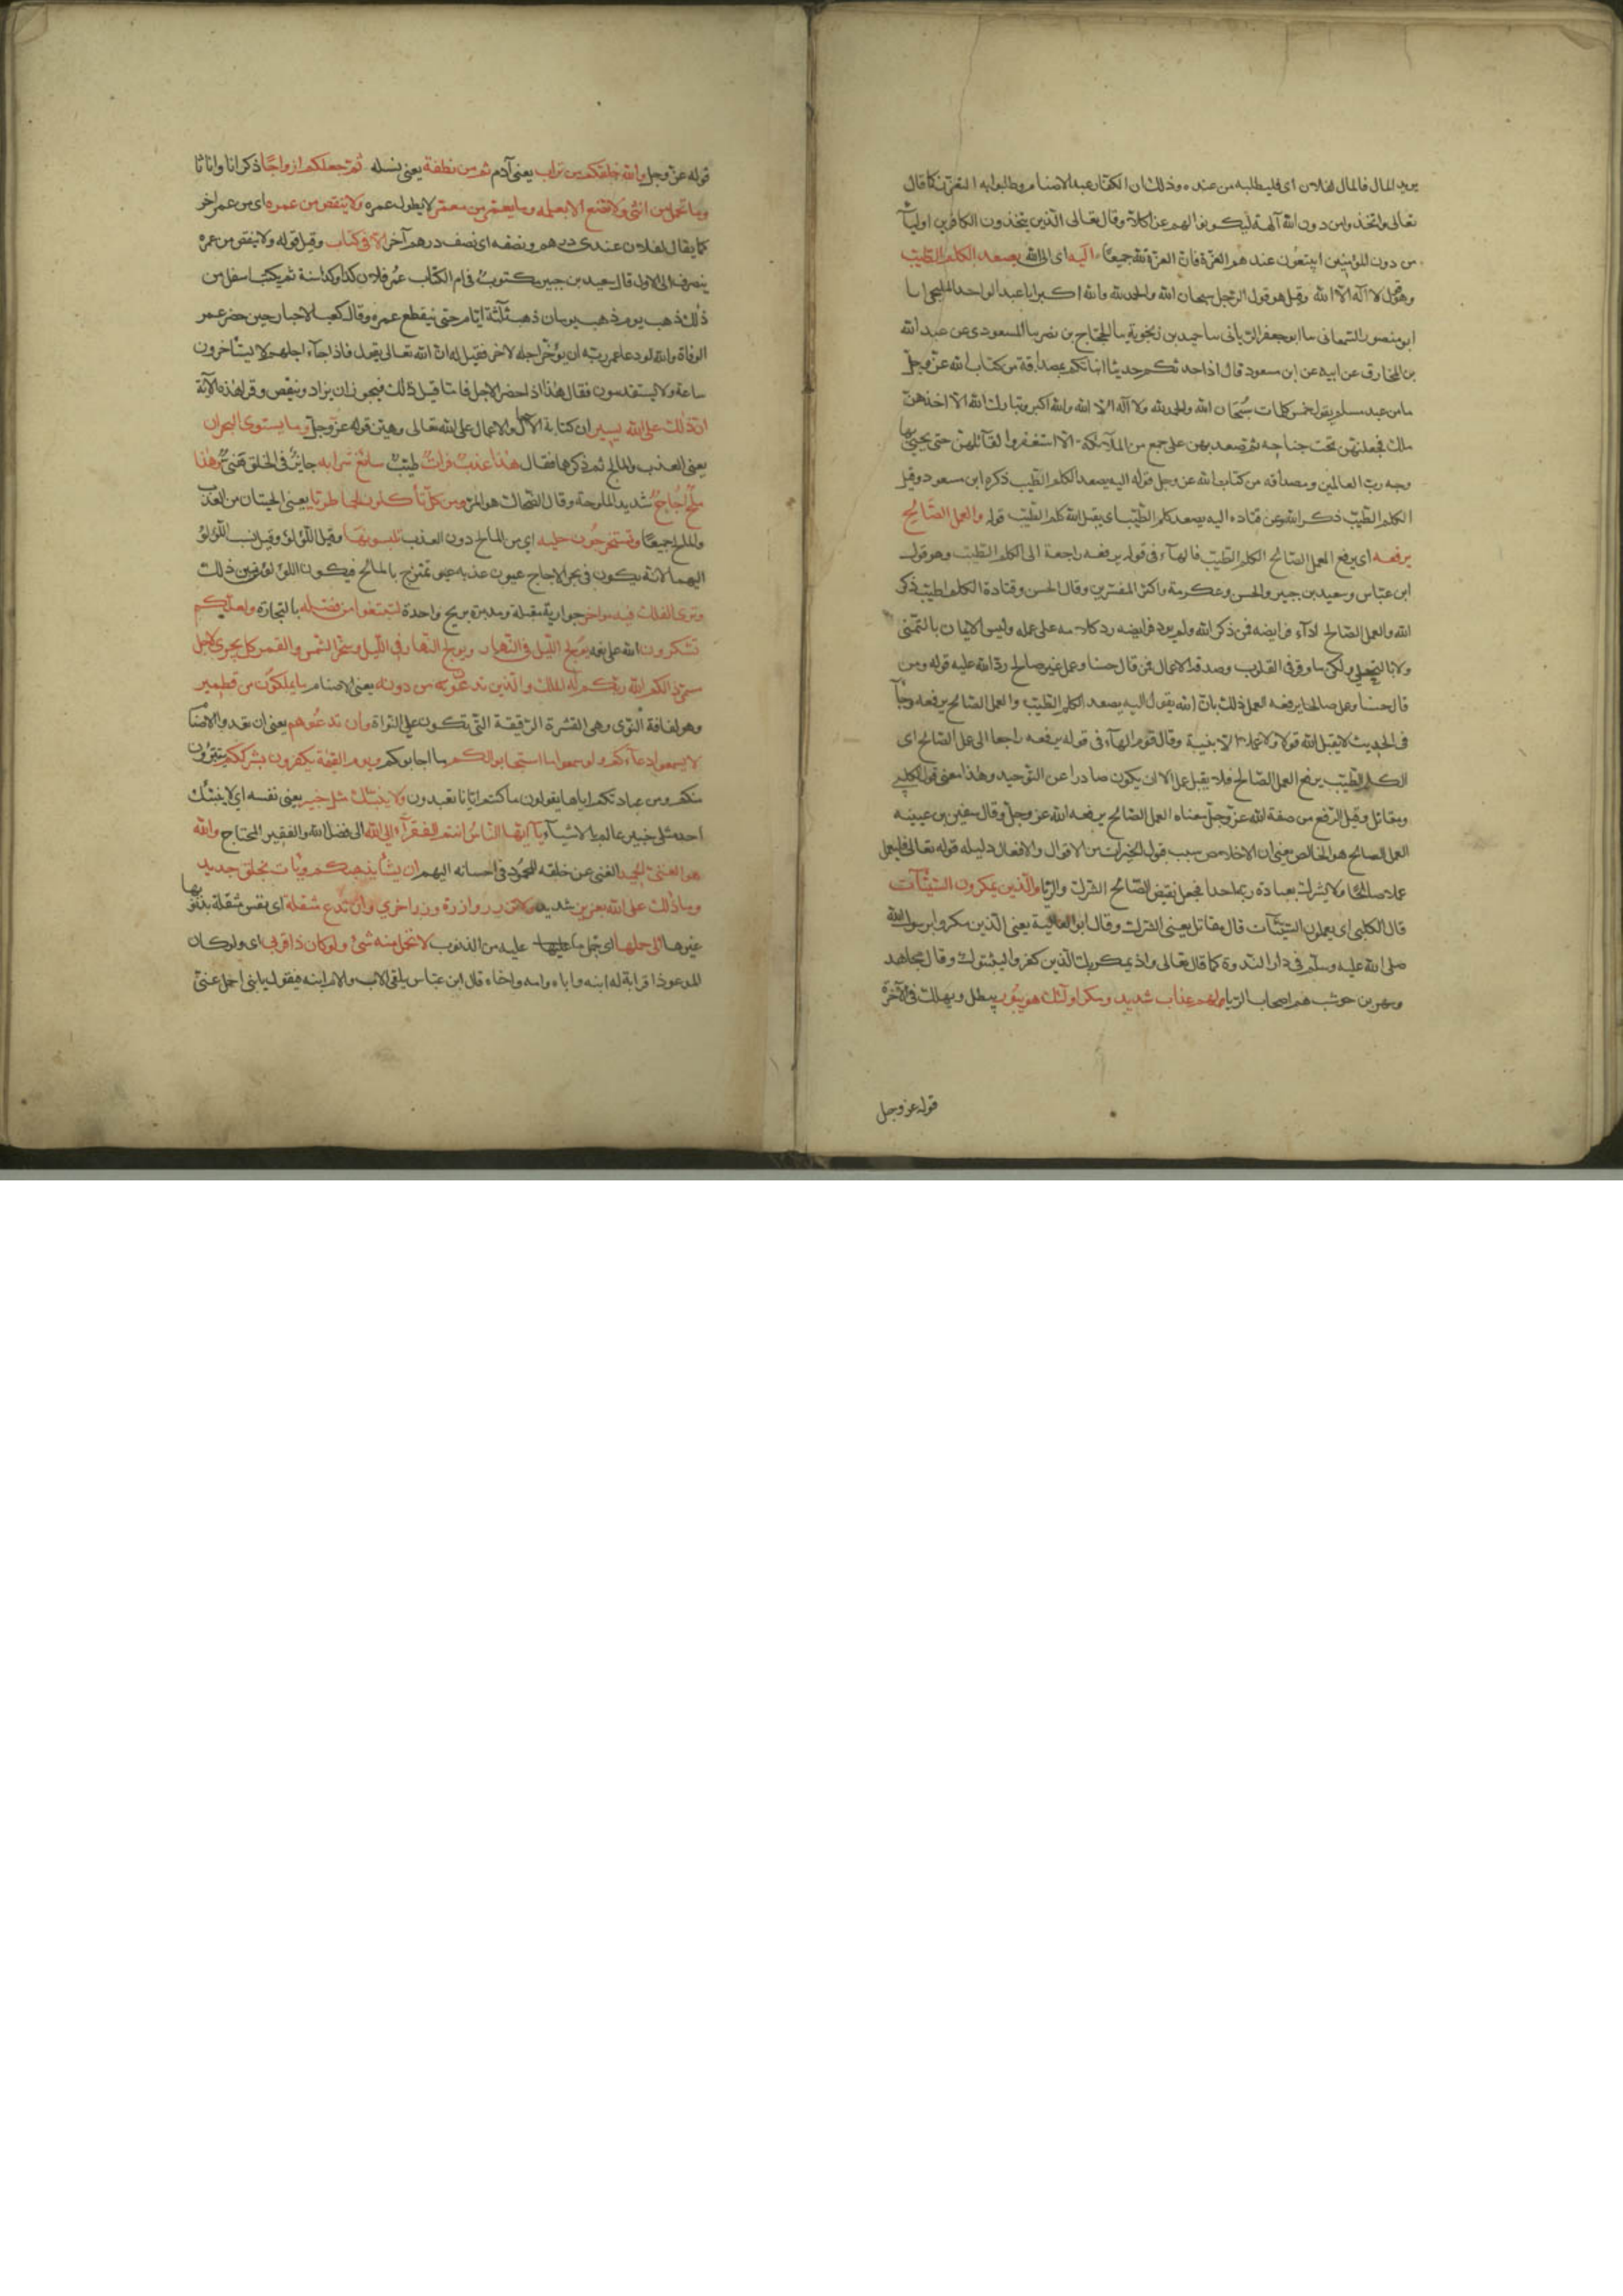 يريد المال فالمال لفلان اى فليطلبه من عنده وذلك ان الكفار عبدوا الاصنام وطلبوا به التعزز كما قال
تعالى واتخذوا من دون الله آلهة ليكونوا لهم عزا كلا وقال تعالى الذين يتخذون الكافرين اوليآء
من دون المؤمنين ايبتغون عندهم العزة فان العزة لله جميعا اليه اى الى الله يصعد الكلم الطيب
وهو قول لا اله الا الله وقيل هو قول الرجل سبحان الله والحمد لله والله اكبر انا عبد الواحد المليحى انا
ابو منصور السمعانى سا ابو جعفر الريانى سا حميد بن زنجوية سا الحجاج بن نصر سا المسعودى عن عبد الله
بن المخارق عن ابيه عن ابن مسعود قال اذا حدثتكم حديثا انباتكم بمصداقة من كتاب الله عز وجل
ما من عبد مسلم يقول خمس كلمات سبحان الله والحمد لله ولا اله الا الله والله اكبر وتبارك الله الا اخذهن
ملك فجعلهن تحت جناحه ثم صعد بهن على جمع من الملآئكة الا استغفروا لقائلهن حتى يحيى بها
وجه رب العالمين ومصداقه من كتاب الله عز وجل قوله اليه يصعد الكلم الطيب ذكره ابن مسعود وقيل
الكلم الطيب ذكر الله وعن قتاده اليه يصعد الكلم الطيب اى يقبل الله كلم الطيب قوله والعمل الصالح
يرفعه اى يرفع العمل الصالح الكلم الطيب فالهآء فى قوله يرفعه راجعة الى الكلم الطيب وهو قول
ابن عباس وسعيد بن جبير والحسن وعكرمة واكثر المفسرين وقال الحسن وقتادة الكلم الطيب ذكر
الله والعمل الصالح ادآء فرايضه فمن ذكر الله ولم يود فرايضه رد كلامه على عمله وليس الايمان بالتمنى
ولا بالتحلى ولكن ما وقر فى القلوب وصدقه الاعمال فمن قال حسنا وعمل غير صالح رد الله عليه قوله ومن
قال حسنا وعمل صالحا يرفعه العمل ذلك بان الله يقول اليه يصعد الكلم الطيب والعمل الصالح يرفعه وجآء
فى الحديث لا يقبل الله قولا ولا عملا الا بنية وقال قوم الهآء فى قوله يرفعه راجعا الى عمل الصالح اى
الكلم الطيب يرفع العمل الصالح فلا يقبل عمل الا ان يكون صادرا عن التوحيد وهذا معنى قول الكلبى
ومقاتل وقيل الرفع من صفة الله عز وجل معناه العمل الصالح يرفعه الله عز وجل وقال سفين بن عيينه
العمل الصالح هو الخالص يعنى ان الاخلاص سبب قبول الخيرات من الاقوال والافعال دليله قوله تعالى فليعمل
عملا صالحا ولا يشرك بعبادة ربه احدا فجعل نقيض الصالح الشرك والريا والذين يمكرون السيئآت
قال الكلبى اى يعملون السيئآت قال مقاتل يعنى الشرك وقال ابو العالية يعنى الذين مكروا برسول الله
صلى الله عليه وسلم فى دار الندوة كما قال تعالى واذ يمكر بك الذين كفروا ليثبتوك وقال مجاهد
وشهر بن حوشب هم اصحاب الريا لهم عذاب شديد ومكر اولئك هو يبور يبطل ويهلك فى الآخرة
قوله عز وجل
قوله عز وجل والله خلقكم من تراب يعنى آدم ثم من نطفة يعنى نسله ثم جعلكم ازواجا ذكرانا واناثا
وما تحمل من انثى ولا تضع الا بعلمه وما يعمر من معمر لا يطول عمره ولا ينقص من عمره اى من عمر اخر
كما يقال لفلان عندى درهم ونصفه اى نصف درهم آخر الا فى كتاب وقيل قوله ولا ينقص من عمره
ينصرف الى الاول قال سعيد بن جبير مكتوب فى ام الكتاب عمر فلان كذا وكذا سنة ثم يكتب اسفل من
ذلك ذهب يوم ذهب يومان ذهب ثلثة ايام حتى ينقطع عمره وقال كعب الاحبار حين حضر عمر
الوفاة والله لو دعا عمر ربه ان يؤخر اجله لاخر فقيل له ان الله تعالى يقول فاذا جآء اجلهم لا يستأخرون
ساعة ولا يستقدمون فقال هذا اذا حضر الاجل فاما قبل ذلك فيجوز ان يزاد وينقص وقرا هذه الآية
ان ذلك على الله يسير ان كتابة الآجال والاعمال على الله تعالى وهين قوله عز وجل وما يستوى البحران
يعنى العذب والمالح ثم ذكرهما فقال هذا عذب فرات طيب سائغ شرابه جايز فى الخلق هنى وهذا
ملح اجاج شديد الملوحة وقال الضحاك هو المر ومن كل تأكلون لحما طريا يعنى الحيتان من العذب
والملح جميعا وتستخرجون حلية اى من المالح دون العذب تلبسونها وقيل اللؤلؤ وقيل نسب اللؤلؤ
اليهما لانه يكون فى بحر الاجاج عيون عذبه تمتزج بالمالح فيكون اللؤلؤ من بين ذلك
وترى الفلك فيه مواخر جوارية مقبلة ومدبرة بريح واحدة لتبتغوا من فضله بالتجارة ولعلكم
تشكرون الله على نعمه يولج الليل فى النهار ويولج النهار فى الليل وسخر الشمس والقمر كل يجرى لاجل
مسمى ذلكم الله ربكم له الملك والذين تدعون من دونه يعنى الاصنام ما يملكون من قطمير
وهو لفافة النوى وهى القشرة الرقيقة التى تكون على النواة وان تدعوهم يعنى ان تدعوا الاصنام
لا يسمعوا دعآءكم ولو سمعوا ما استجابوا لكم ما اجابوكم ويوم القيمة يكفرون بشرككم يتبرؤن
منكم ومن عبادتكم اياها يقولون ما كنتم ايانا تعبدون ولا ينبئك مثل خبير يعنى نفسه اى لا ينبئك
احد مثلى خبير عالم بالاشيآء يآ ايها الناس انتم الفقرآء الى الله الى فضل الله والفقير المحتاج والله
هو الغنى الحميد الغنى عن خلقه المحمود فى احسانه اليهم ان يشأ يذهبكم ويأت بخلق جديد
وما ذلك على الله بعزيز شديد ولا تزر وازرة وزر اخرى وان تدع مثقلة اى نفس مثقلة بذنوبها
غيرها الى حملها اى حمل ما عليها عليه من الذنوب لا يحمل منه شىء ولو كان ذا قربى اى ولو كان
المدعو ذا قرابة له ابنه واباه وامه واخاه قال ابن عباس يلقى الاب والام ابنه فيقول يا بنى احمل عنى